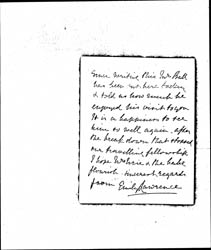 Since writing this Mr Ball
has been out here today
& told us how much he
enjoyed his visit to you
It is a happiness to see
him so well again, after
the break down that
our travelling fellowship
I hope & the babe
flourish. kindest regards
from Emily Lawrence